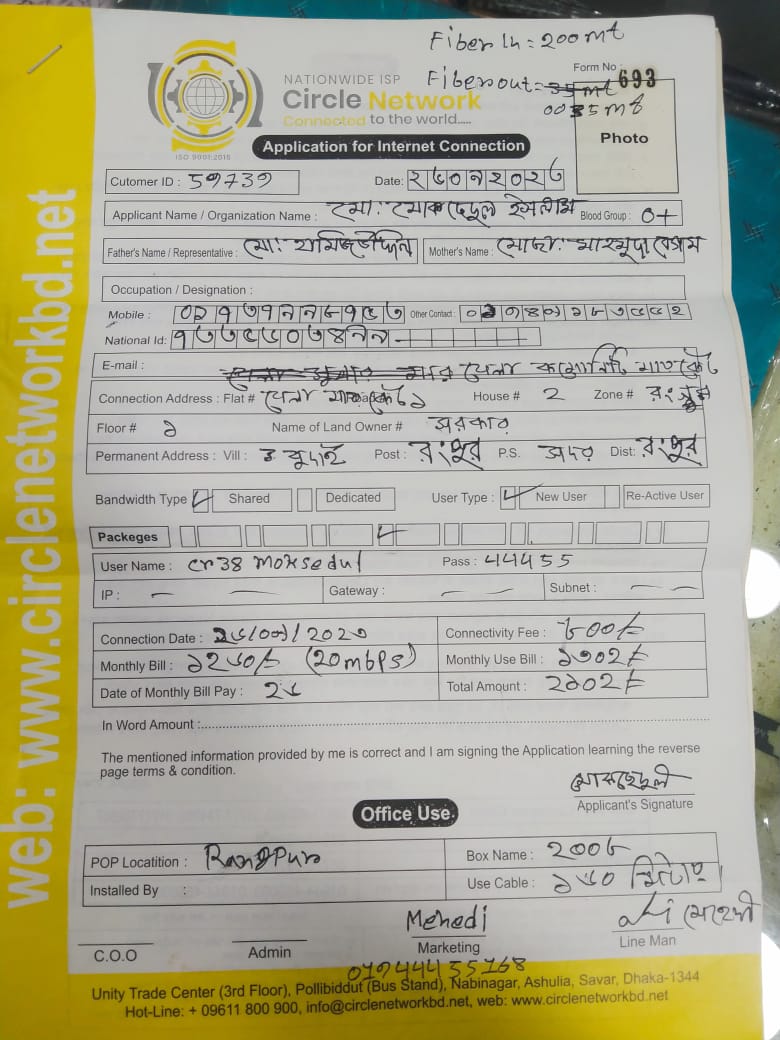 Fiber In = 200 mt
NATIONWIDE ISP
Form No : 693
Circle Network
Fiber out = 35 mt
0035 mt
Connected to the world.....
ISO 9001:2015
Photo
Application for Internet Connection
Cutomer ID : 59739
Date:
Applicant Name / Organization Name : মো: মোকছেদুল ইসলাম Blood Group : O+
Father's Name / Representative : মো: হামিজউদ্দিন Mother's Name : মোছা: মাহমুদা বেগম
Occupation / Designation :
Mobile : Other Contact :
National Id:
E-mail :
Connection Address : Flat # House # 2 Zone # রংপুর
Floor # ১ Name of Land Owner # সরকার
Permanent Address : Vill : Post : রংপুর P.S. সদর Dist: রংপুর
Bandwidth Type Shared Dedicated User Type : New User Re-Active User
Packeges
User Name : cr38 moksedul Pass : 44455
IP : — — Gateway : — Subnet : — —
Connection Date : Connectivity Fee : ৮০০/=
Monthly Bill : ১২৬০/= (20mbps) Monthly Use Bill : ১৩০২/=
Date of Monthly Bill Pay : ২৬ Total Amount : ২১০২/=
In Word Amount :
The mentioned information provided by me is correct and I am signing the Application learning the reverse
page terms & condition.
মোকছেদুল
Applicant's Signature
Office Use.
POP Locatition : Rangpur Box Name : 200৮
Installed By : Use Cable : ১৬০ মিটার
Mehedi
C.O.O Admin Marketing Line Man
01944455168
Unity Trade Center (3rd Floor), Pollibiddut (Bus Stand), Nabinagar, Ashulia, Savar, Dhaka-1344
Hot-Line: + 09611 800 900, info@circlenetworkbd.net, web: www.circlenetworkbd.net
web: www.circlenetworkbd.net